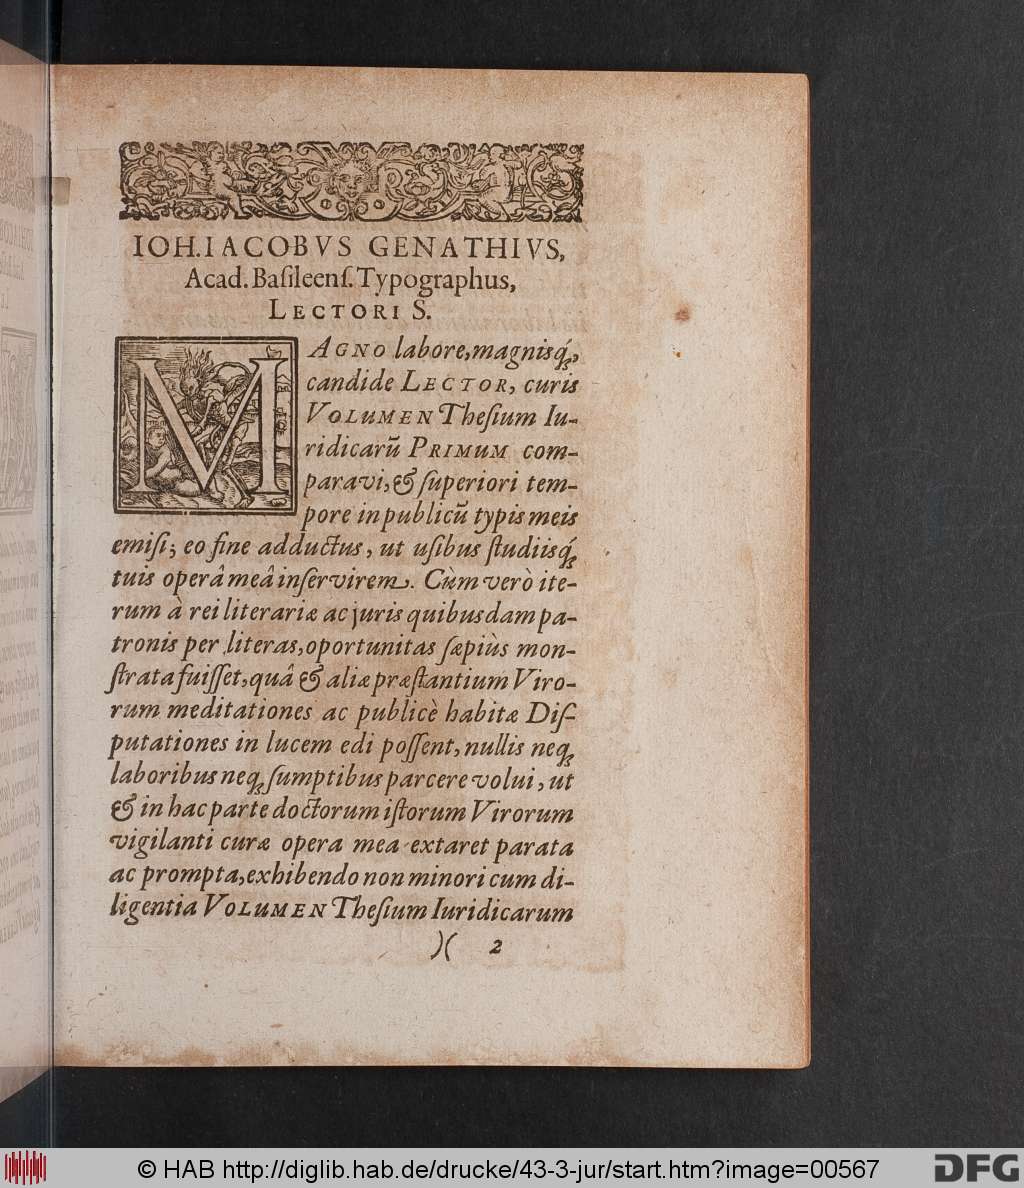 IOH. IACOBVS GENATHIVS,
Acad. Baſileenſ. Typographus,
LECTORI S.
MAGNO labore, magnisq́;,
candide LECTOR, curis
VOLUMEN Theſium Iu-
ridicarũ PRIMUM com-
paravi, & ſuperiori tem-
pore in publicũ typis meis
emiſi; eo fine adductus, ut uſibus ſtudiisq́;
tuis operâ meâ inſervirem. Cùm verò ite-
rum à rei literariæ ac juris quibusdam pa-
tronis per literas, oportunitas ſæpiùs mon-
ſtrata fuiſſet, quâ & aliæ præſtantium Viro-
rum meditationes ac publicè habitæ Diſ-
putationes in lucem edi poſſent, nullis neq;
laboribus neq; ſumptibus parcere volui, ut
& in hac parte doctorum iſtorum Virorum
vigilanti curæ opera mea extaret parata
ac prompta, exhibendo non minori cum di-
ligentia VOLUMEN Theſium Iuridicarum
)( 2
© HAB http://diglib.hab.de/drucke/43-3-jur/start.htm?image=00567
DFG